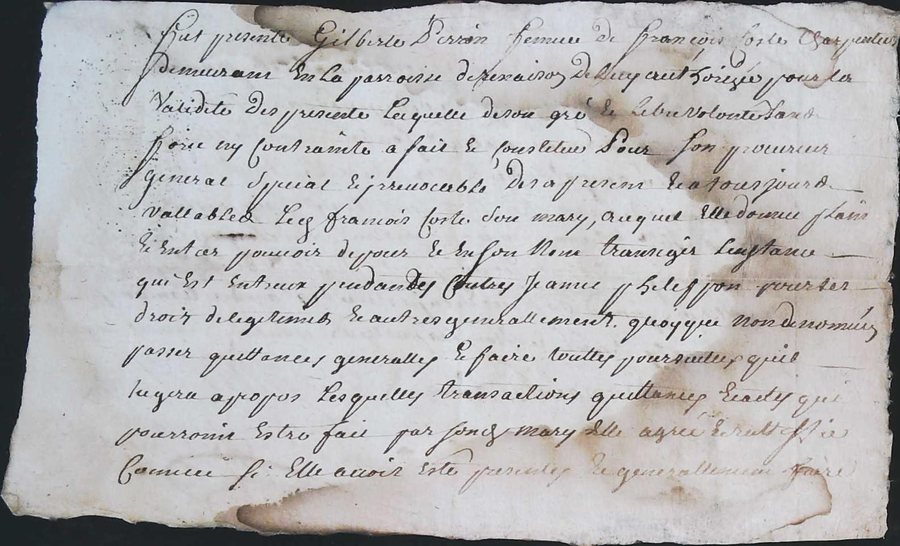 fut presente Gilberte Perrin femme de françois Coste Charpentier
demeurant en la parroisse de renaison de luy authorizée pour la
validité des presente laquelle de son gré et libre volonte sans
force ny contrainte a fait et constitue pour son procureur
general special et irrevocable des a present et a tousjours
vallables led francois Coste son mary, auquel elle donne plain
et entier pouvoir de pour et en son nom transiger linstance
qui est entreux pendantes contre Jeanne phelippon pour ser
droit de legitimes et autres generallement quoyque non denomées
passer quittances generalles et faire touttes poursuittes quil
jugera apropos lesquelles transactions quittances et actes qui
pourront estre fait par sond mary elle agrée et ratiffie
Comme si elle avoit esté presente et generallement faire